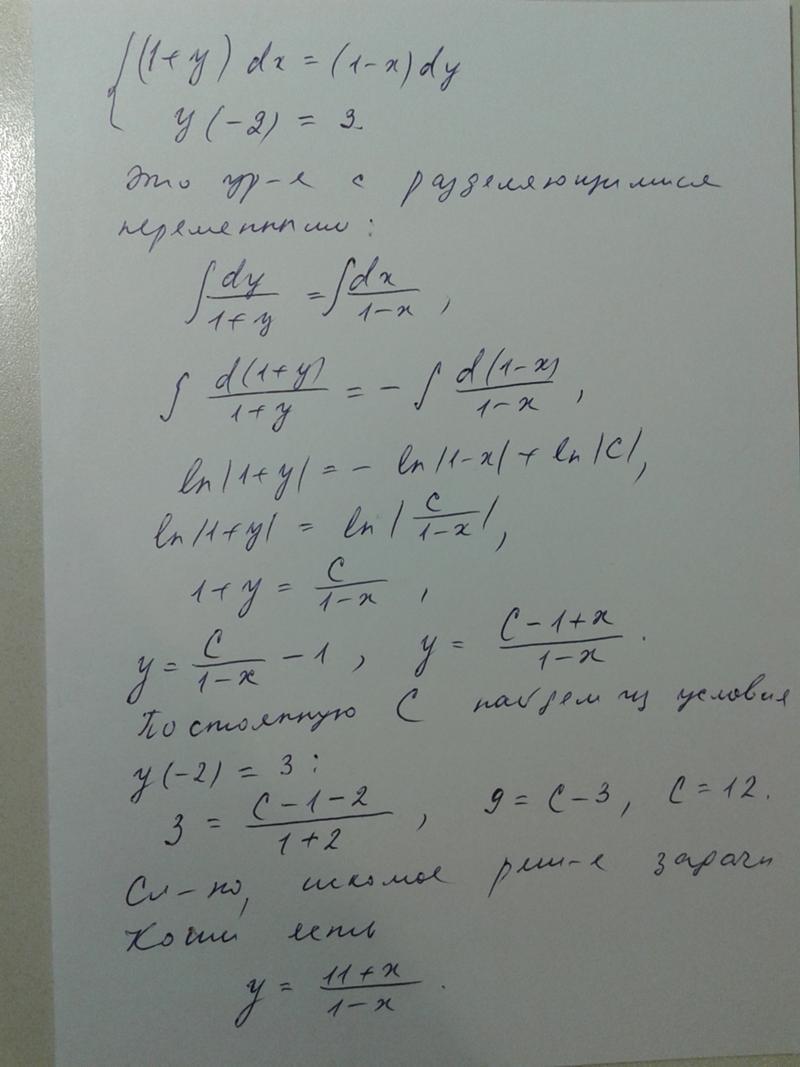 {(1+y) dx = (1-x) dy
y(-2) = 3
Это ур-е с разделяющимися
переменными:
∫ dy/(1+y) = ∫ dx/(1-x) ,
∫ d(1+y)/(1+y) = - ∫ d(1-x)/(1-x) ,
ln|1+y| = - ln|1-x| + ln|C|,
ln|1+y| = ln|C/(1-x)|,
1+y = C/(1-x) ,
y = C/(1-x) - 1 , y = (C-1+x)/(1-x) .
Постоянную C найдем из условия
y(-2) = 3 :
3 = (C-1-2)/(1+2) , 9 = C-3, C = 12.
Сл-но, искомое реш-е задачи
Коши есть
y = (11+x)/(1-x) .